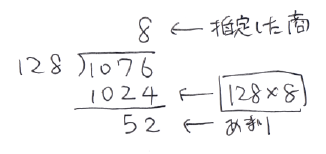 8 ← 推定した商
128)1076
1024 ← 128×8
52 ← あまり